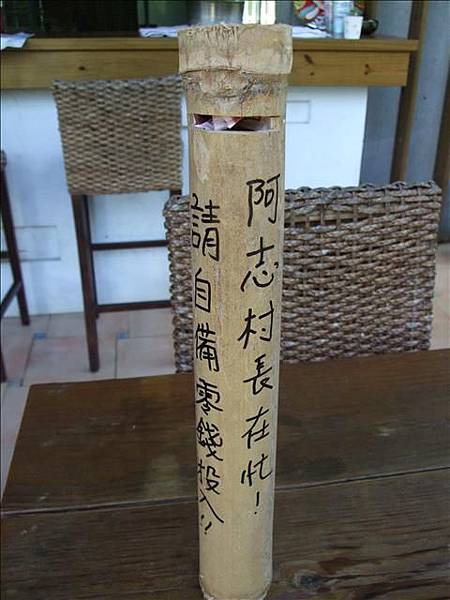 阿志村長在忙!
請自備零錢投入!!